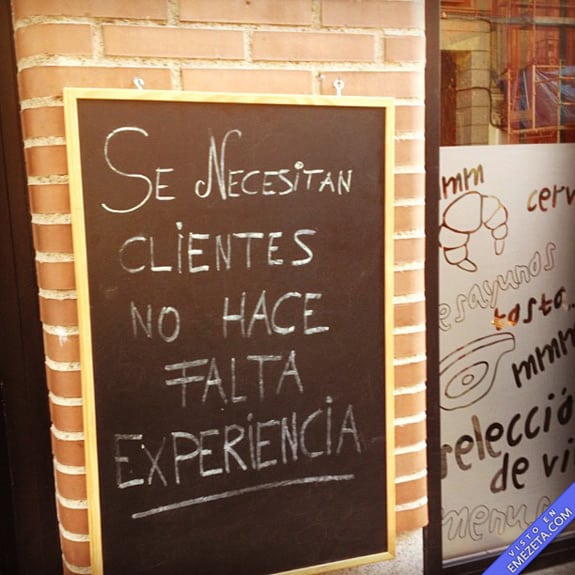 SE NECESITAN
CLIENTES
NO HACE
FALTA
EXPERIENCIA
mmm
cerv
esayunos
tosta
mmm
selecció
de vi
menus
VISTO EN
EMEZETA.COM